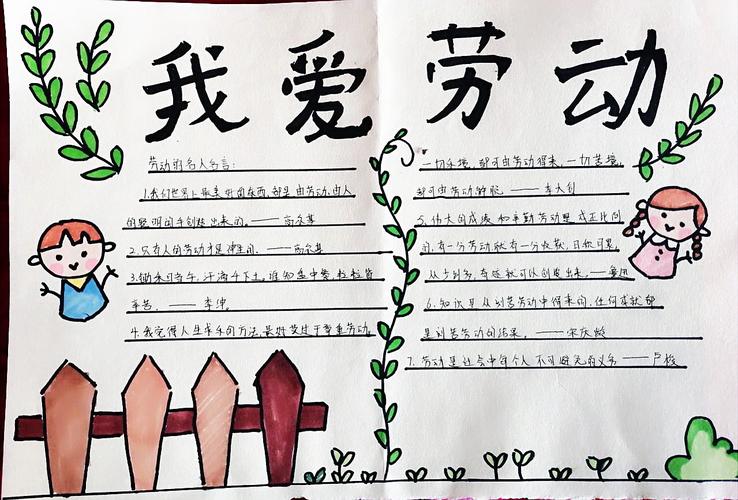 我爱劳动
劳动的名人名言:
1.我们世界上最美好的东西,都是由劳动,由人
的聪明的手创造出来的。——高尔基
2.只有人的劳动才是神圣的。——高尔基
3.锄禾日当午,汗滴禾下土。谁知盘中餐,粒粒皆
辛苦。——李绅。
4.我觉得人生求乐的方法,最好莫过于尊重劳动。
一切乐境,都可由劳动得来,一切苦境,
都可由劳动解脱。——李大钊
5.伟大的成绩和辛勤劳动是成正比例
的,有一分劳动就有一分收获,日积月累,
从少到多,奇迹就可以创造出来。——鲁迅
6.知识是从刻苦劳动中得来的,任何成就都
是刻苦劳动的结果。——宋庆龄
7.劳动是社会中每个人不可避免的义务——卢梭